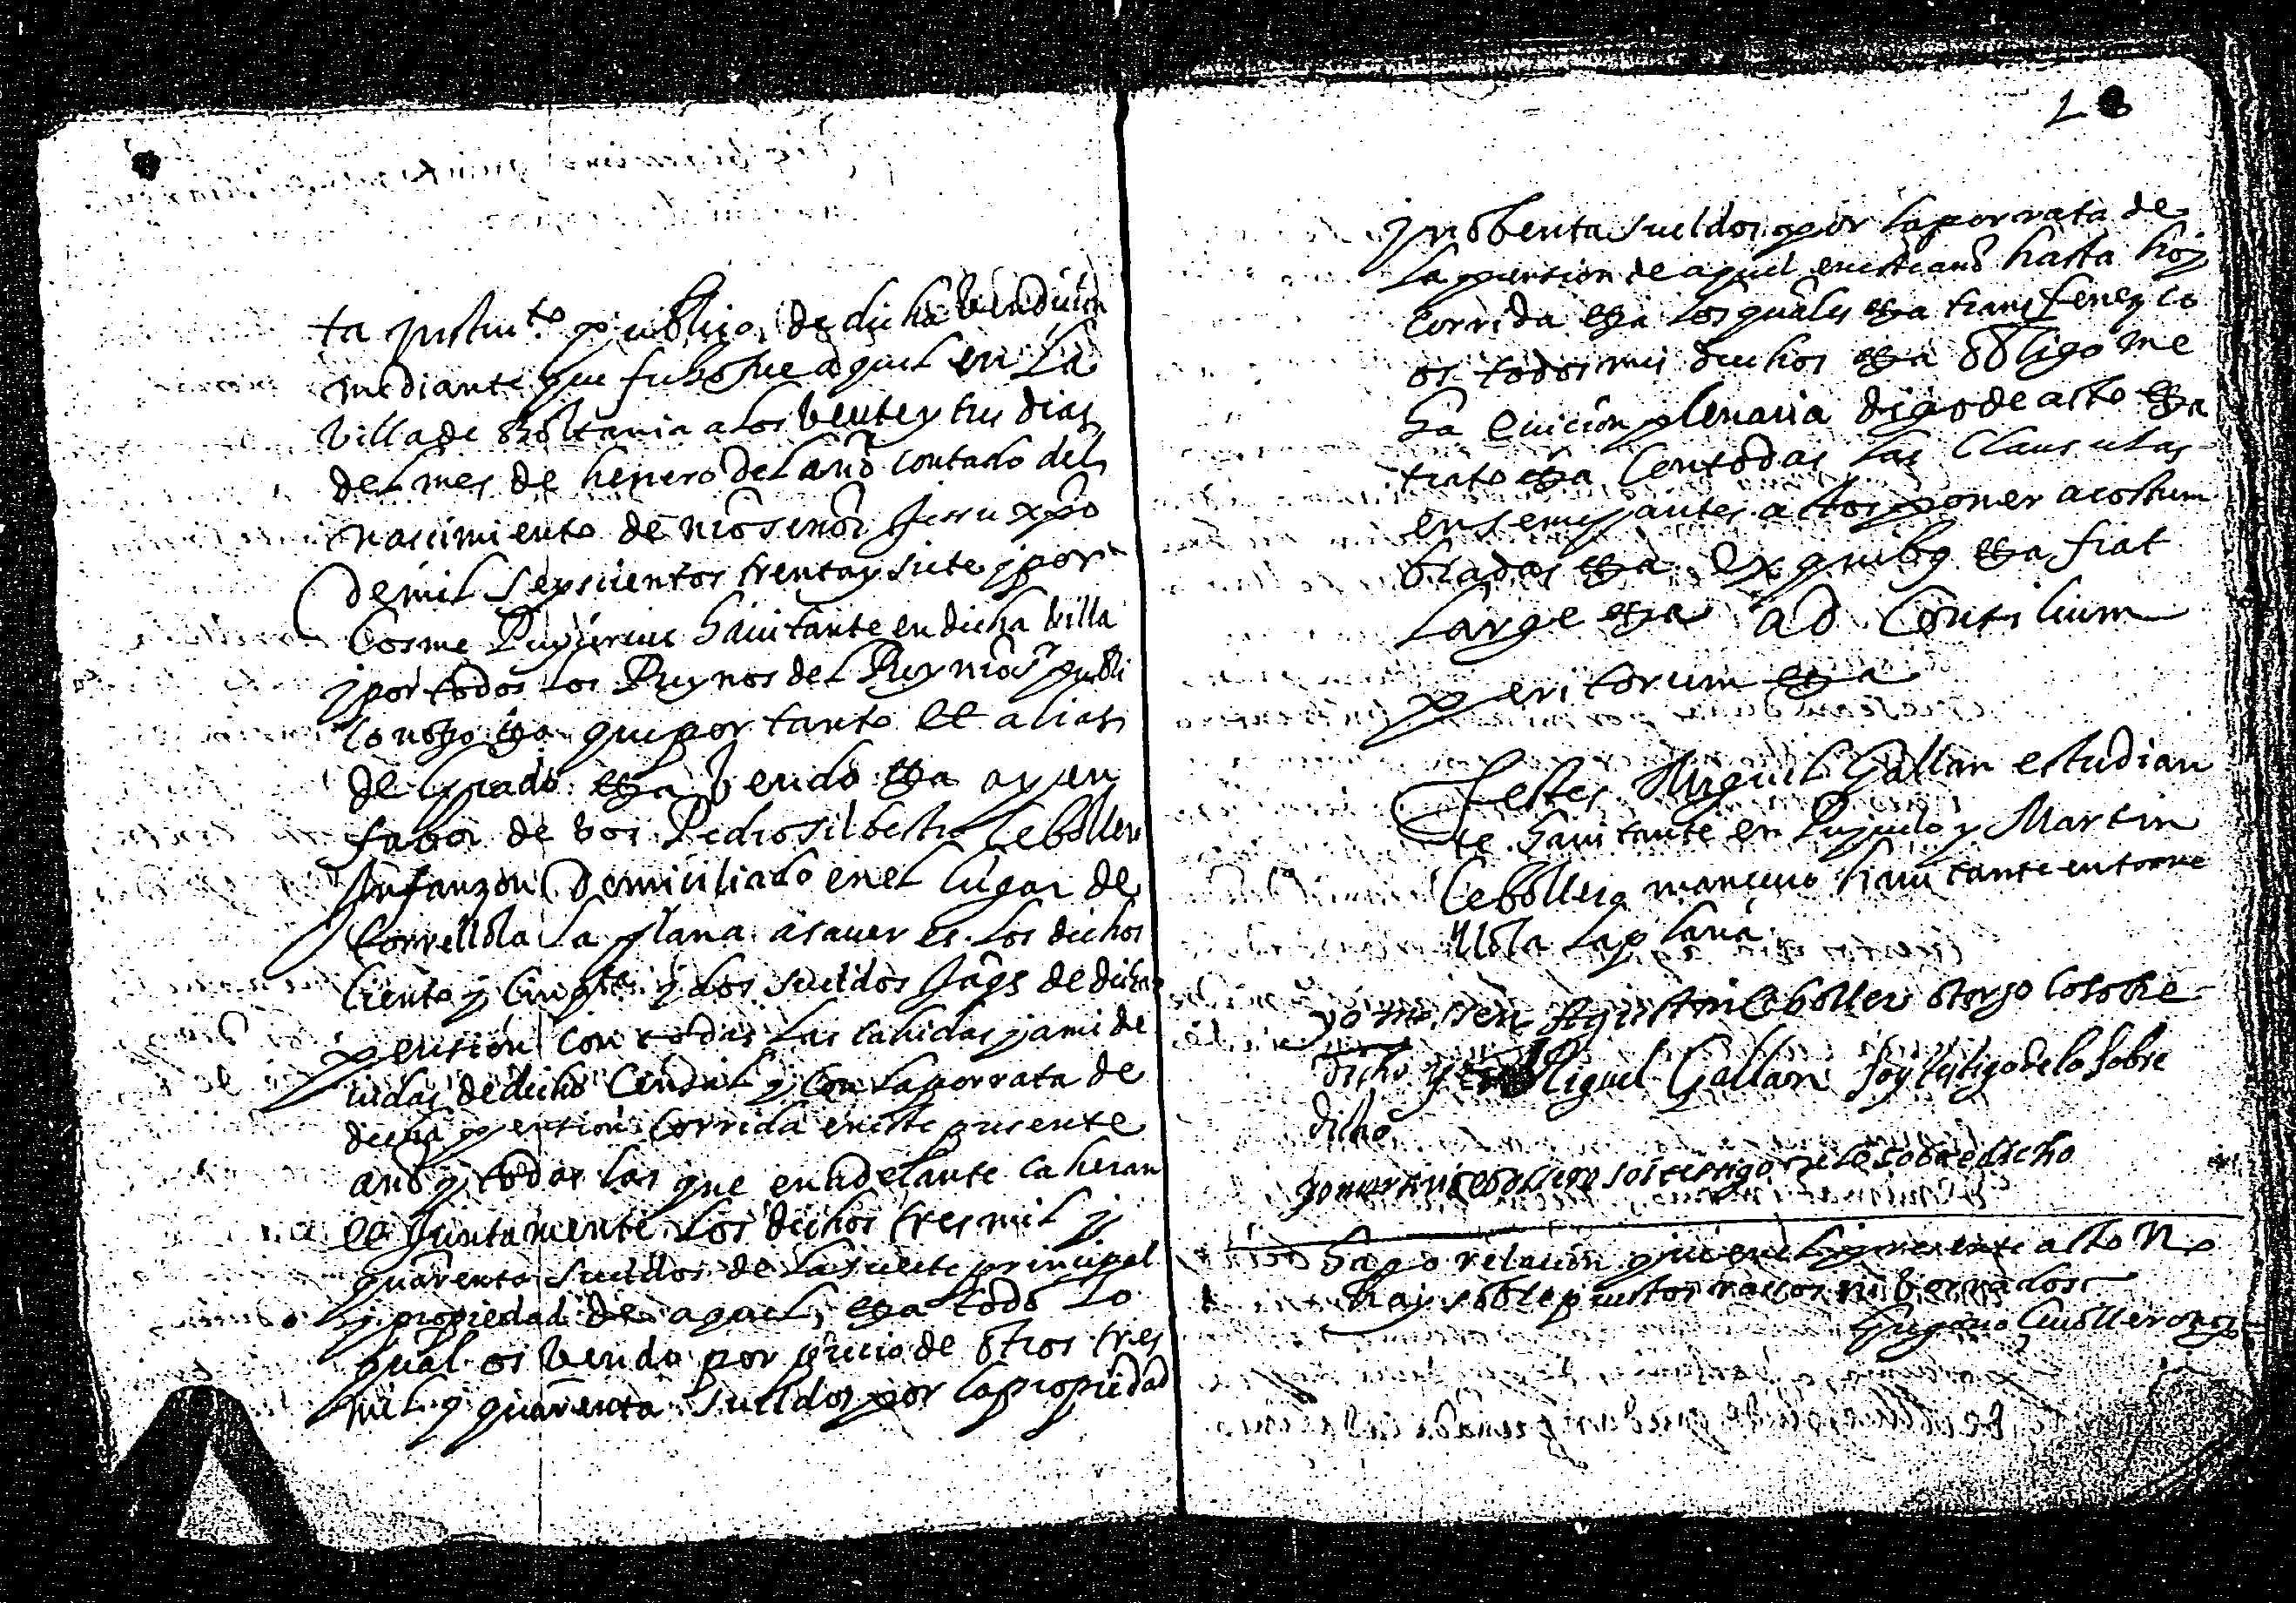 ta instru.to publico de dicha vendicion
mediante que fuho fue aquel en la
villa de Boltania a los veute y tres dias
del mes de henero del año contado del
nascimiento de nro señor Jesu xpo
de mil seyscientos trenta y siete y por
Cosme hauitante en dicha villa
y por todos los Reynos del Rey nro sr publi
co notro etza que por tanto et alias
de grado etza vendo etza ay en
fabor de vos Pedro Silbestre Cebollero
Infanzon domiciliado en el lugar de
torrellola la plana asauer es los dichos
ciento y cinqta y dos sueldos jaqs de dicha
pension con todas las cahidas y ami de
uidas de dicho Censal y con la porrata de
dicha pension corrida en este presente
año y todas las que en adelante caheran
et juntamente los dichos tres mil y
quarenta sueldos de la suerte principal
y propiedad de aquel, etza todo lo
qual os vendo por precio de otros tres
mil y quarenta sueldos por la propiedad
2
y nobenta sueldos por la porrata de
la pension de aquel en este año hasta hoy
corrida etza los quales etza transferezco
os todos mis drechos etza obligo me
ha euicion plenaria digo de acto etza
trato etza Con todas las Clausulas
en semejantes actos poner acostum
bradas etza Ex quibus etza fiat
large etza ad Consilium
peritorum etza
Testes Miguel Gallan estudian
te hauitante en Puyuelo y Martin
Cebollero manceuo hauitante en torre
llola la plana
yo mossen Agustin Cebollero otorgo lo sobre
dicho yo Miguel Gallan soy testigo de lo sobre
dicho
yo martin cebollero soi testigo de lo sobre dicho
hago relacion que en el presente acto no
hay sobrepuestos rassos ni borrados